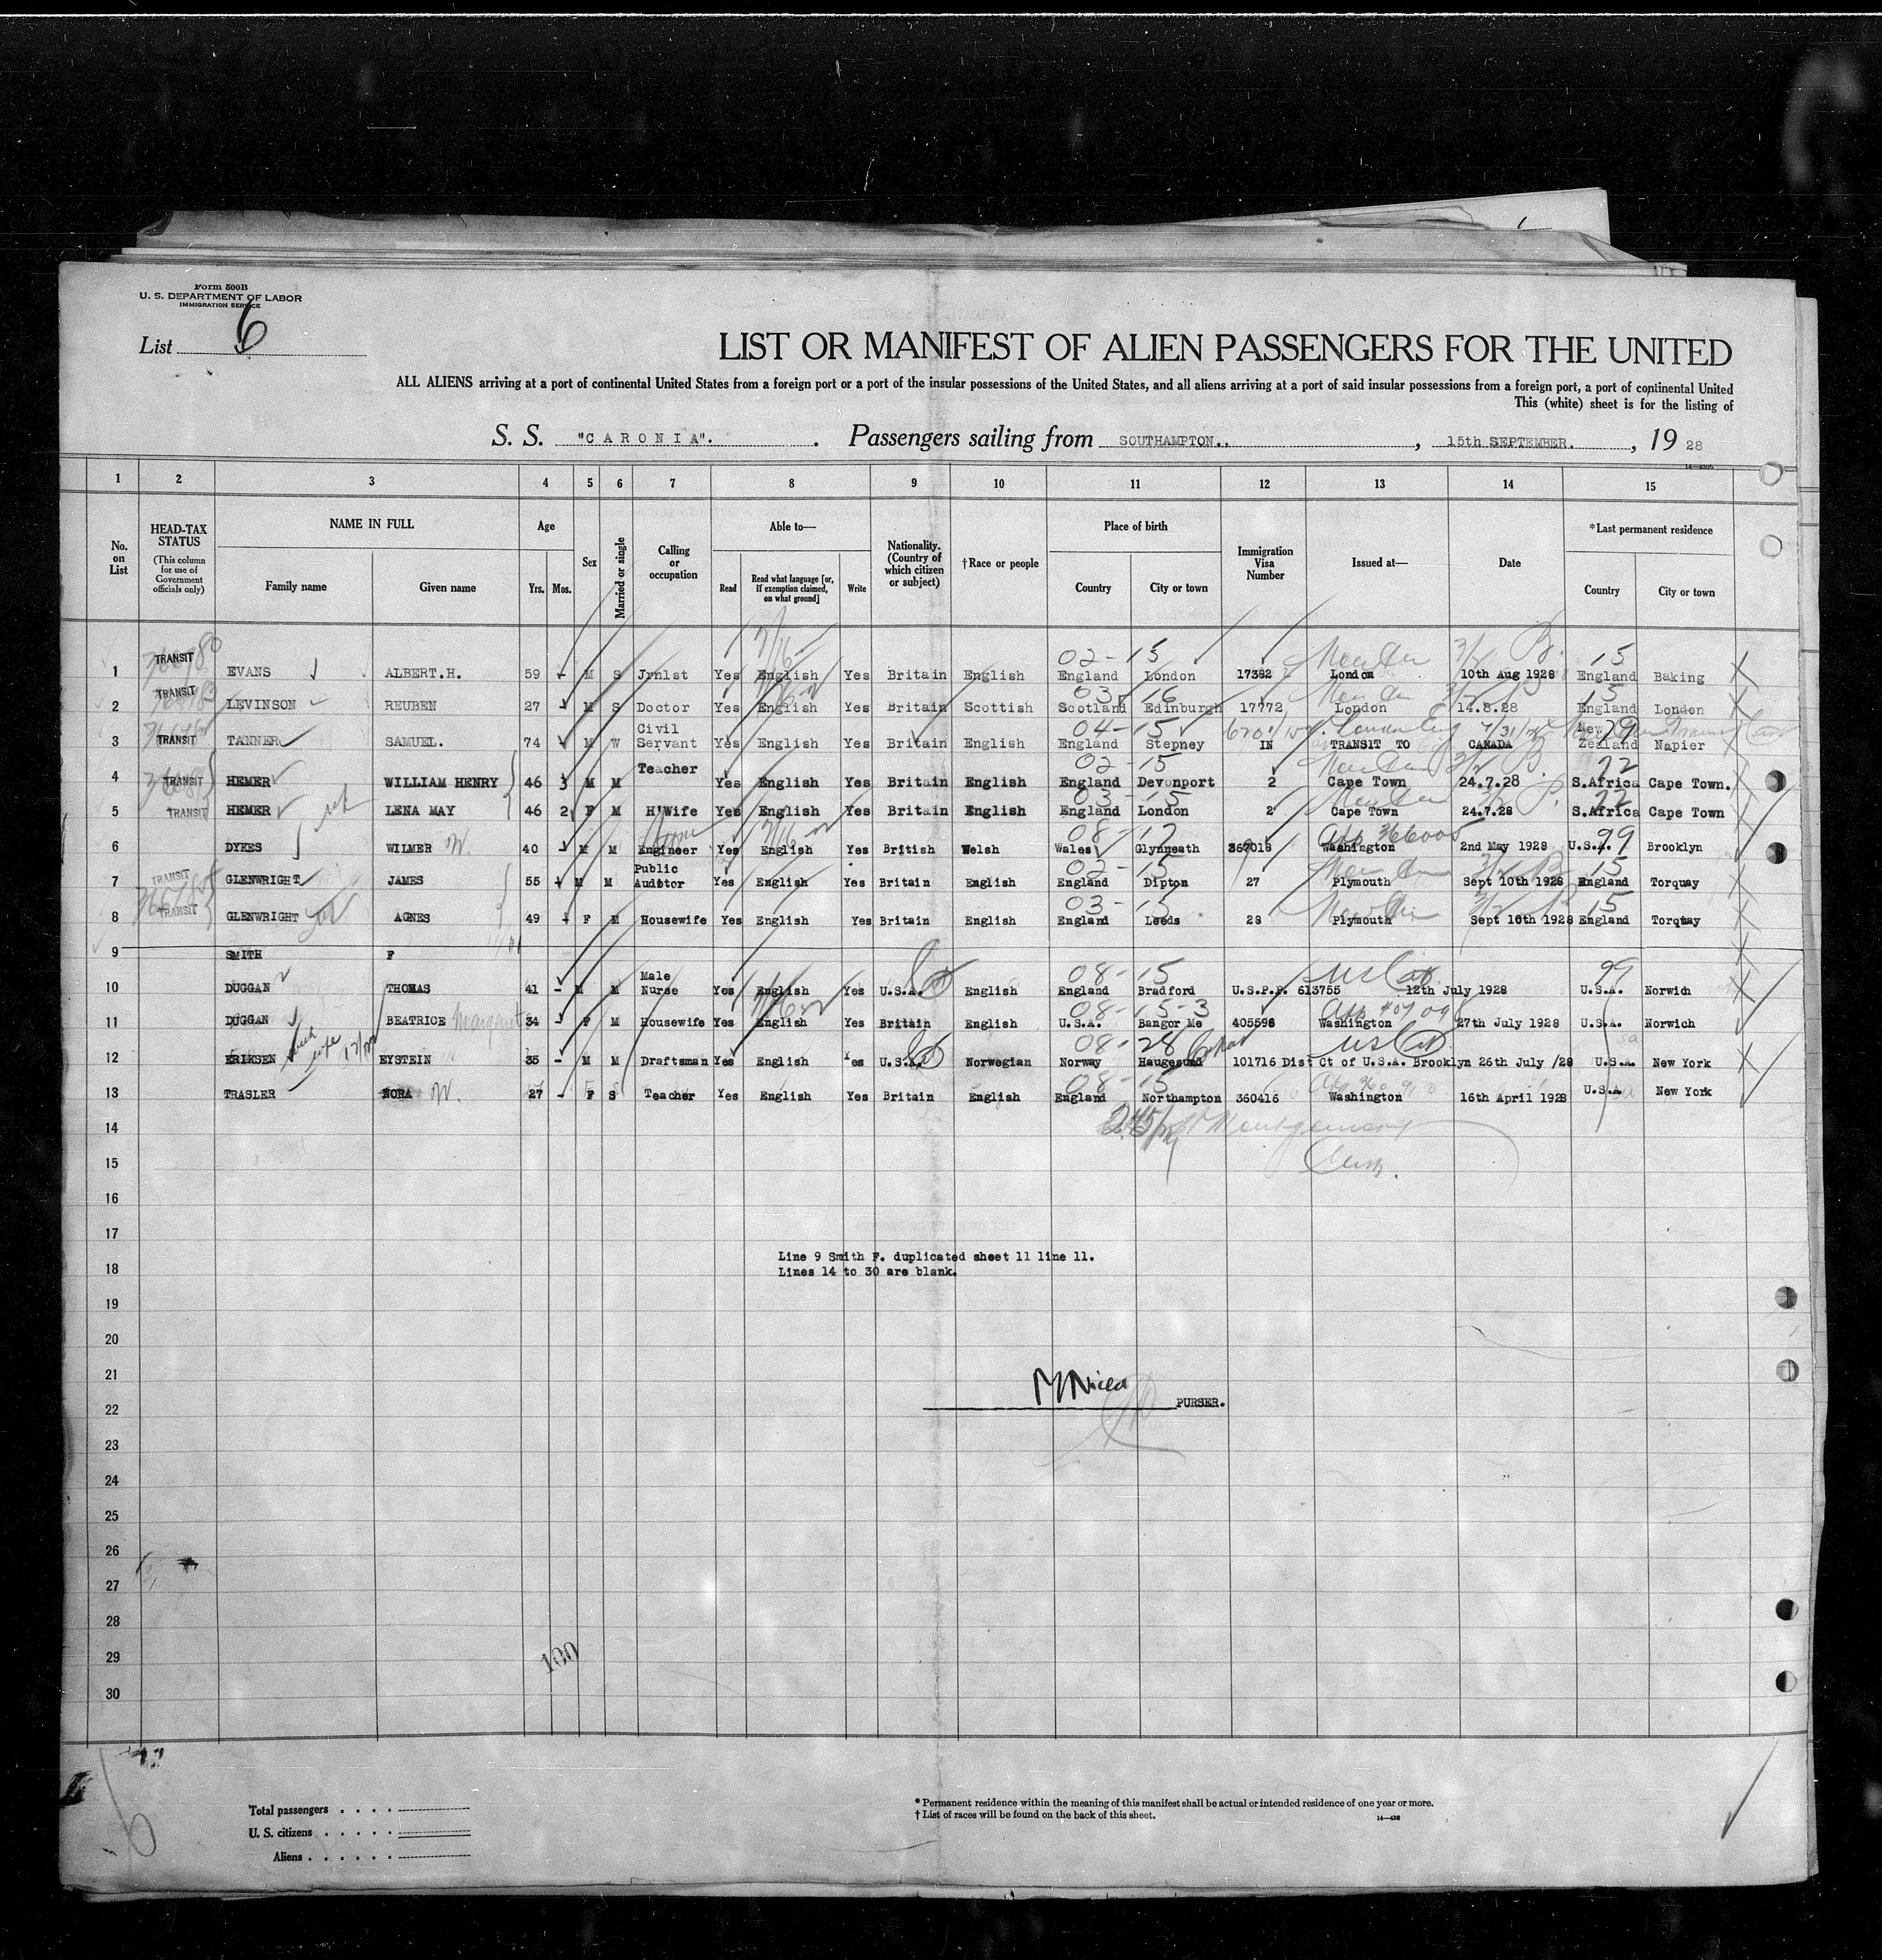 Form 500B
U. S. DEPARTMENT OF LABOR
IMMIGRATION SERVICE
List 6
LIST OR MANIFEST OF ALIEN PASSENGERS FOR THE UNITED
ALL ALIENS arriving at a port of continental United States from a foreign port or a port of the insular possessions of the United States, and all aliens arriving at a port of said insular possessions from a foreign port, a port of continental United
This (white) sheet is for the listing of
S. S. "CARONIA". . Passengers sailing from SOUTHAMPTON., , 15th SEPTEMBER. , 19 28
1 2 3 4 5 6 7 8 9 10 11 12 13 14 15
No. on List
HEAD-TAX STATUS (This column for use of Government officials only)
NAME IN FULL Family name Given name
Age Yrs. Mos.
Sex
Married or single
Calling or occupation
Able to— Read Read what language [or, if exemption claimed, on what ground] Write
Nationality. (Country of which citizen or subject)
†Race or people
Place of birth Country City or town
Immigration Visa Number
Issued at—
Date
*Last permanent residence Country City or town
02-15 15
1 TRANSIT EVANS ALBERT.H. 59 - M S Jrnlst Yes English Yes Britain English England London 17382 London 10th Aug 1928 England Baking
03 16 15
2 TRANSIT LEVINSON REUBEN 27 - M S Doctor Yes English Yes Britain Scottish Scotland Edinburgh 17772 London 14.8.28 England London
04-15 29
3 TRANSIT TANNER SAMUEL. 74 M W Civil Servant Yes English Yes Britain English England Stepney IN TRANSIT TO CANADA New Zealand Napier
02-15 72
4 TRANSIT HEMER WILLIAM HENRY 46 3 M M Teacher Yes English Yes Britain English England Devonport 2 Cape Town 24.7.28 S.Africa Cape Town.
03-15 22
5 TRANSIT HEMER LENA MAY 46 2 F M H'Wife Yes English Yes Britain English England London 2 Cape Town 24.7.28 S.Africa Cape Town
08-17 366005 99
6 DYKES WILMER W. 40 - M M Engineer Yes English Yes British Welsh Wales Glynneath 367018 Washington 2nd May 1928 U.S.A. Brooklyn
02-15 15
7 TRANSIT GLENWRIGHT JAMES 55 M M Public Auditor Yes English Yes Britain English England Dipton 27 Plymouth Sept 10th 1928 England Torquay
03-15 15
8 TRANSIT GLENWRIGHT AGNES 49 F M Housewife Yes English Yes Britain English England Leeds 28 Plymouth Sept 10th 1928 England Torquay
9 SMITH F
08-15 99
10 DUGGAN THOMAS 41 - M M Male Nurse Yes English Yes U.S.A. English England Bradford U.S.P.P. 613755 12th July 1928 U.S.A. Norwich
08-15-3
11 DUGGAN BEATRICE Margaret 34 - F M Housewife Yes English Yes Britain English U.S.A. Bangor Me 405598 Washington 27th July 1928 U.S.A. Norwich
08-28
12 ERIKSEN EYSTEIN 35 - M M Draftsman Yes English Yes U.S.A. Norwegian Norway Haugesund 101716 Dist Ct of U.S.A. Brooklyn 26th July /28 U.S.A. New York
08-15
13 TRASLER NORA W. 27 - F S Teacher Yes English Yes Britain English England Northampton 360416 Washington 16th April 1928 U.S.A New York
14 Montgomery
15
16
17
Line 9 Smith F. duplicated sheet 11 line 11.
18 Lines 14 to 30 are blank.
19
20
21
22 PURSER.
23
24
25
26
27
28
29 100
30
Total passengers . . . .
U. S. citizens . . . . .
Aliens . . . . . .
* Permanent residence within the meaning of this manifest shall be actual or intended residence of one year or more.
† List of races will be found on the back of this sheet.